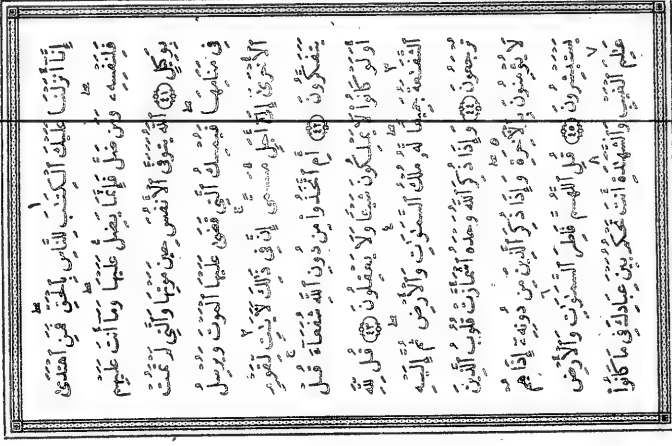 إِنَّآ أَنزَلْنَا عَلَيْكَ ٱلْكِتَٰبَ لِلنَّاسِ بِٱلْحَقِّ ۖ فَمَنِ ٱهْتَدَىٰ
فَلِنَفْسِهِۦ ۖ وَمَن ضَلَّ فَإِنَّمَا يَضِلُّ عَلَيْهَا ۖ وَمَآ أَنتَ عَلَيْهِم
بِوَكِيلٍ ﴿٤١﴾ ٱللَّهُ يَتَوَفَّى ٱلْأَنفُسَ حِينَ مَوْتِهَا وَٱلَّتِى لَمْ تَمُتْ
فِى مَنَامِهَا ۖ فَيُمْسِكُ ٱلَّتِى قَضَىٰ عَلَيْهَا ٱلْمَوْتَ وَيُرْسِلُ
ٱلْأُخْرَىٰٓ إِلَىٰٓ أَجَلٍ مُّسَمًّى ۚ إِنَّ فِى ذَٰلِكَ لَءَايَٰتٍ لِّقَوْمٍ
يَتَفَكَّرُونَ ﴿٤٢﴾ أَمِ ٱتَّخَذُوا۟ مِن دُونِ ٱللَّهِ شُفَعَآءَ ۚ قُلْ
أَوَلَوْ كَانُوا۟ لَا يَمْلِكُونَ شَيْـًٔا وَلَا يَعْقِلُونَ ﴿٤٣﴾ قُل لِّلَّهِ
ٱلشَّفَٰعَةُ جَمِيعًا ۖ لَّهُۥ مُلْكُ ٱلسَّمَٰوَٰتِ وَٱلْأَرْضِ ۖ ثُمَّ إِلَيْهِ
تُرْجَعُونَ ﴿٤٤﴾ وَإِذَا ذُكِرَ ٱللَّهُ وَحْدَهُ ٱشْمَأَزَّتْ قُلُوبُ ٱلَّذِينَ
لَا يُؤْمِنُونَ بِٱلْءَاخِرَةِ ۖ وَإِذَا ذُكِرَ ٱلَّذِينَ مِن دُونِهِۦٓ إِذَا هُمْ
يَسْتَبْشِرُونَ ﴿٤٥﴾ قُلِ ٱللَّهُمَّ فَاطِرَ ٱلسَّمَٰوَٰتِ وَٱلْأَرْضِ
عَٰلِمَ ٱلْغَيْبِ وَٱلشَّهَٰدَةِ أَنتَ تَحْكُمُ بَيْنَ عِبَادِكَ فِى مَا كَانُوا۟